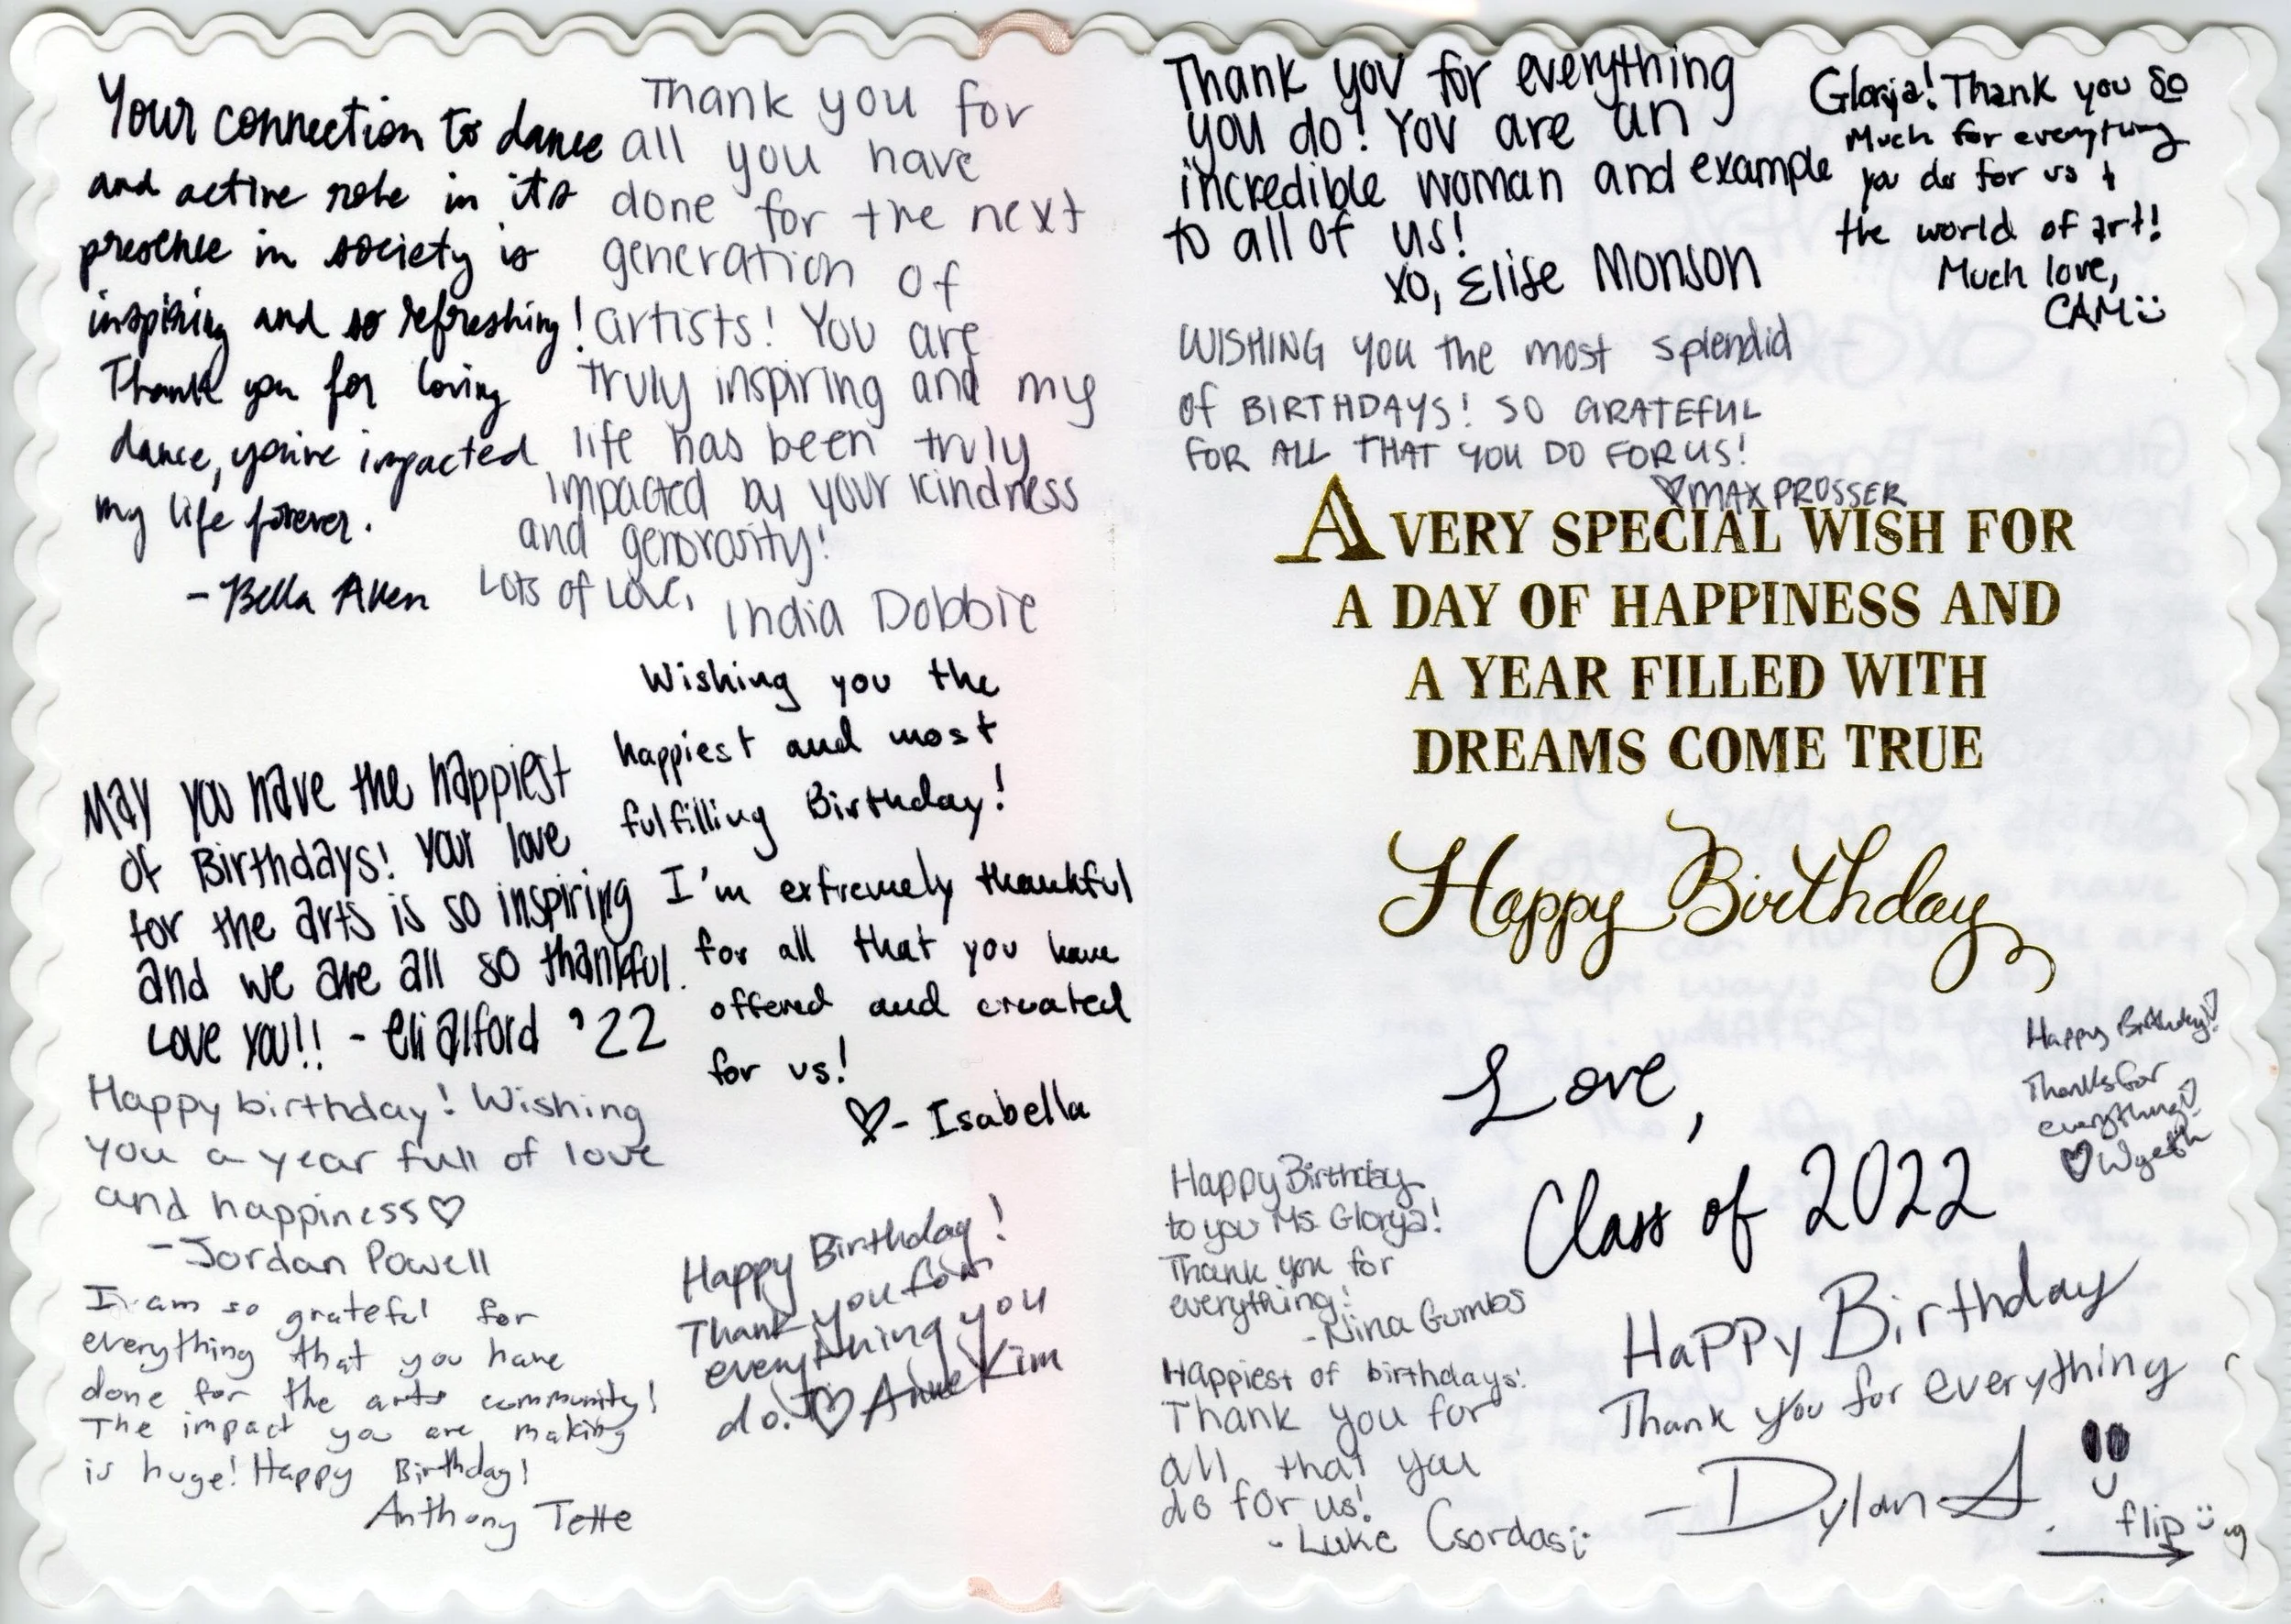 Your connection to dance
and active role in its
presence in society is
inspiring and so refreshing!
Thank you for loving
dance, you've impacted
my life forever.
- Bella Allen
Thank you for
all you have
done for the next
generation of
artists! You are
truly inspiring and my
life has been truly
impacted by your kindness
and generosity!
Lots of Love,
India Dobbie
Wishing you the
happiest and most
fulfilling Birthday!
I'm extremely thankful
for all that you have
offered and created
for us!
♡- Isabella
May you have the happiest
of Birthdays! Your love
for the arts is so inspiring
and we are all so thankful.
Love you!! - eli alford '22
Happy birthday! Wishing
you a year full of love
and happiness♡
-Jordan Powell
I am so grateful for
everything that you have
done for the arts community!
The impact you are making
is huge! Happy Birthday!
Anthony Tette
Happy Birthday!
Thank you for
everything you
do! ♡ Anne Kim
Thank you for everything
you do! You are an
incredible woman and example
to all of us!
xo, Elise Monson
Glorya! Thank you so
Much for everything
you do for us +
the world of art!
Much love,
CAM:)
WISHING you the most splendid
of BIRTHDAYS! SO GRATEFUL
FOR ALL THAT YOU DO FOR US!
♡MAX PROSSER
A VERY SPECIAL WISH FOR
A DAY OF HAPPINESS AND
A YEAR FILLED WITH
DREAMS COME TRUE
Happy Birthday
Love,
Class of 2022
Happy Birthday!
Thanks for
everything!
♡Wyeth
Happy Birthday
to you Ms. Glorya!
Thank you for
everything!
-Nina Gumbs
Happiest of birthdays!
Thank you for
all that you
do for us!
- Luke Csordas :)
Happy Birthday
Thank you for everything
- Dylan S.
flip :)